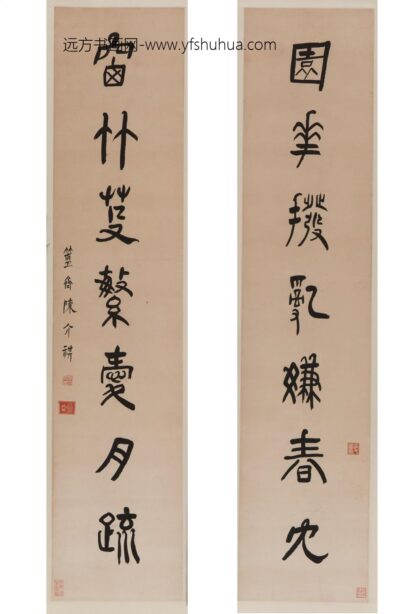 远方书画网-www.yfshuhua.com
園華撥亂嫌春冗
窗竹芟繁愛月疏
簠齋陳介祺